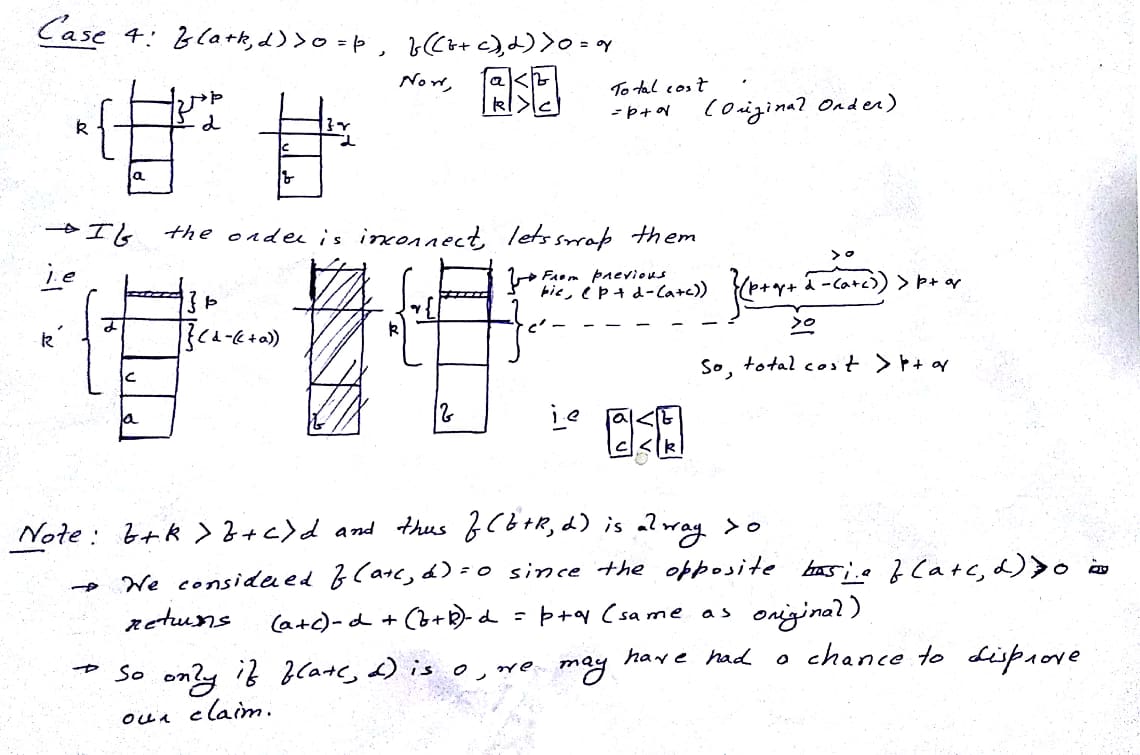 Case 4: f(a+k,d)>0 = p , f((b+c),d)>0 = q
Now, a < b
k > c
Total cost
= p+q (Original Order)
k { } → p
d
a
} q
d
c
b
→ If the order is incorrect, lets swap them
i.e
k' { d } p
} (d-(c+a))
c
a
b
k { q {
} → From previous
pic, (p+d-(a+c))
} c' - - - - - -
b
} (p+q+d-(a+c)) > p+q
>0
≥0
So, total cost > p+q
i.e a < b
c < k
Note: b+k > b+c > d and thus f(b+k,d) is alway >0
→ We considered f(a+c,d)=0 since the opposite i.e f(a+c,d)>0
returns (a+c)-d + (b+k)-d = p+q (same as original)
→ So only if f(a+c,d) is 0, we may have had a chance to disprove
our claim.